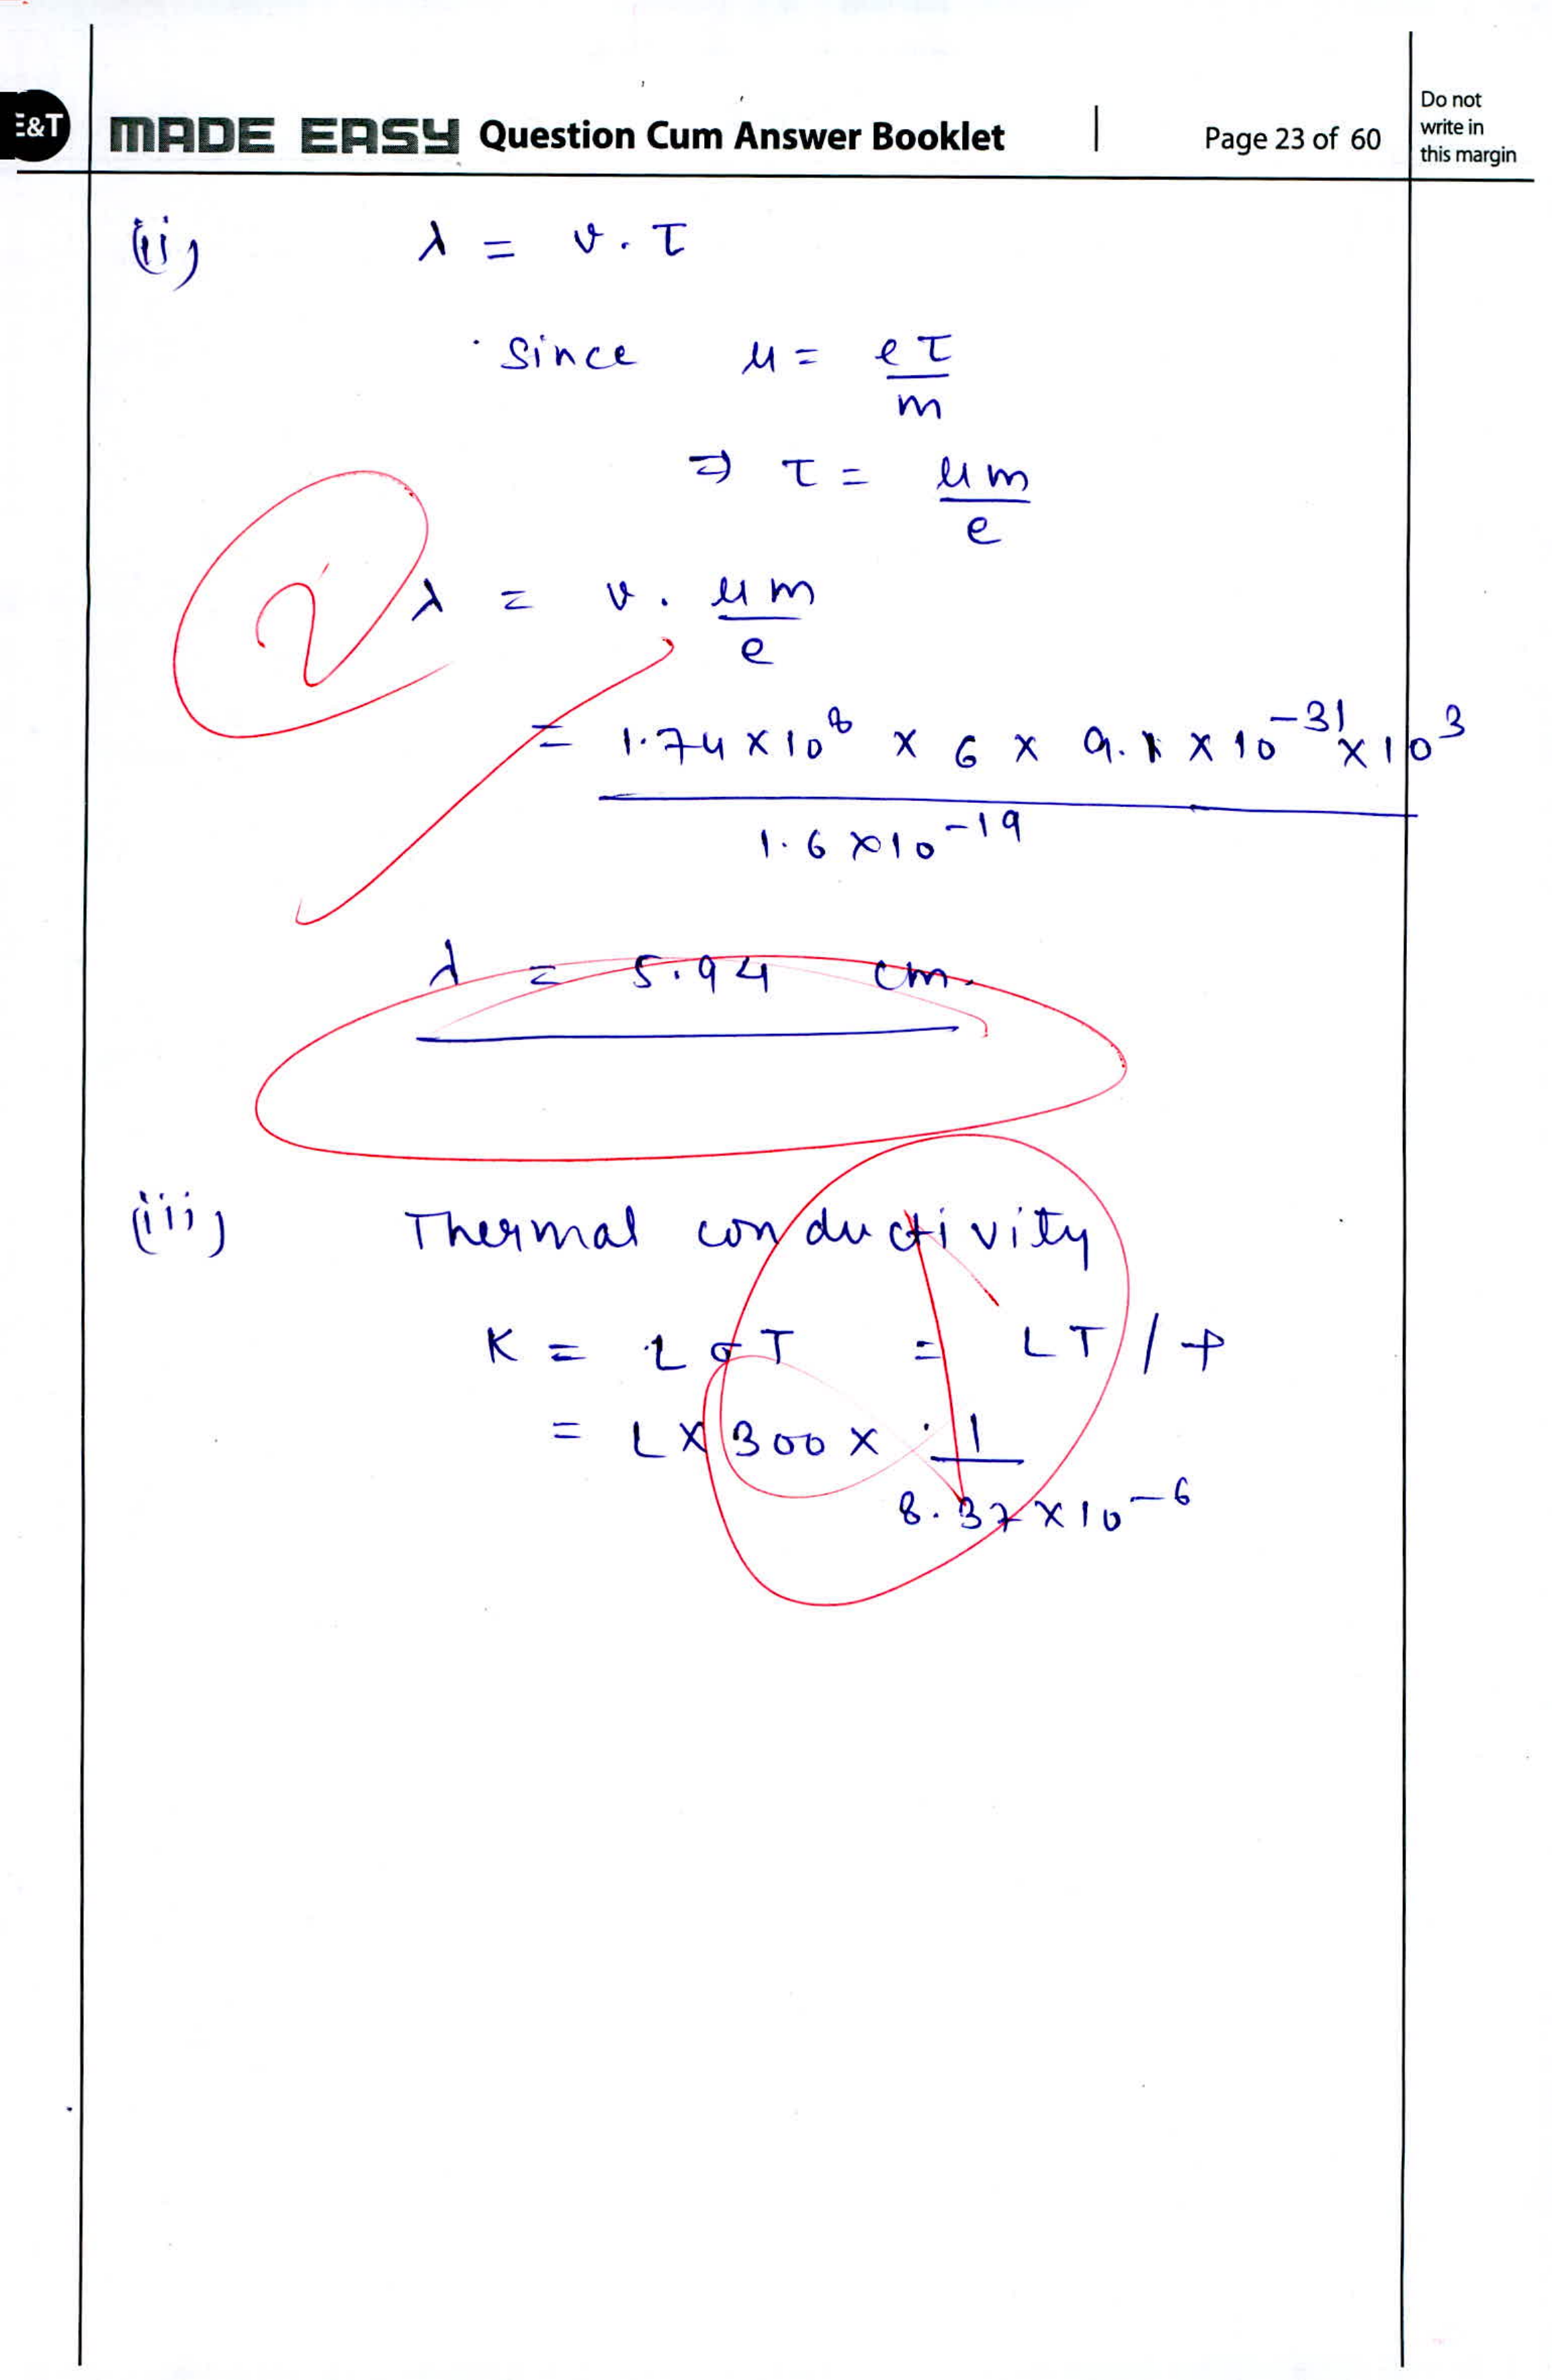 E&T MADE EASY Question Cum Answer Booklet | Page 23 of 60
Do not
write in
this margin
(ii) λ = v . τ
Since μ = eτ
m
⇒ τ = μm
e
2
λ = v . μm
e
= 1.74 × 10⁸ × 6 × 9.1 × 10⁻³¹ × 10³
1.6 × 10⁻¹⁹
λ = 5.94 cm.
(iii) Thermal conductivity
K = LσT = LT / ρ
= L × 300 × 1
8.37 × 10⁻⁶